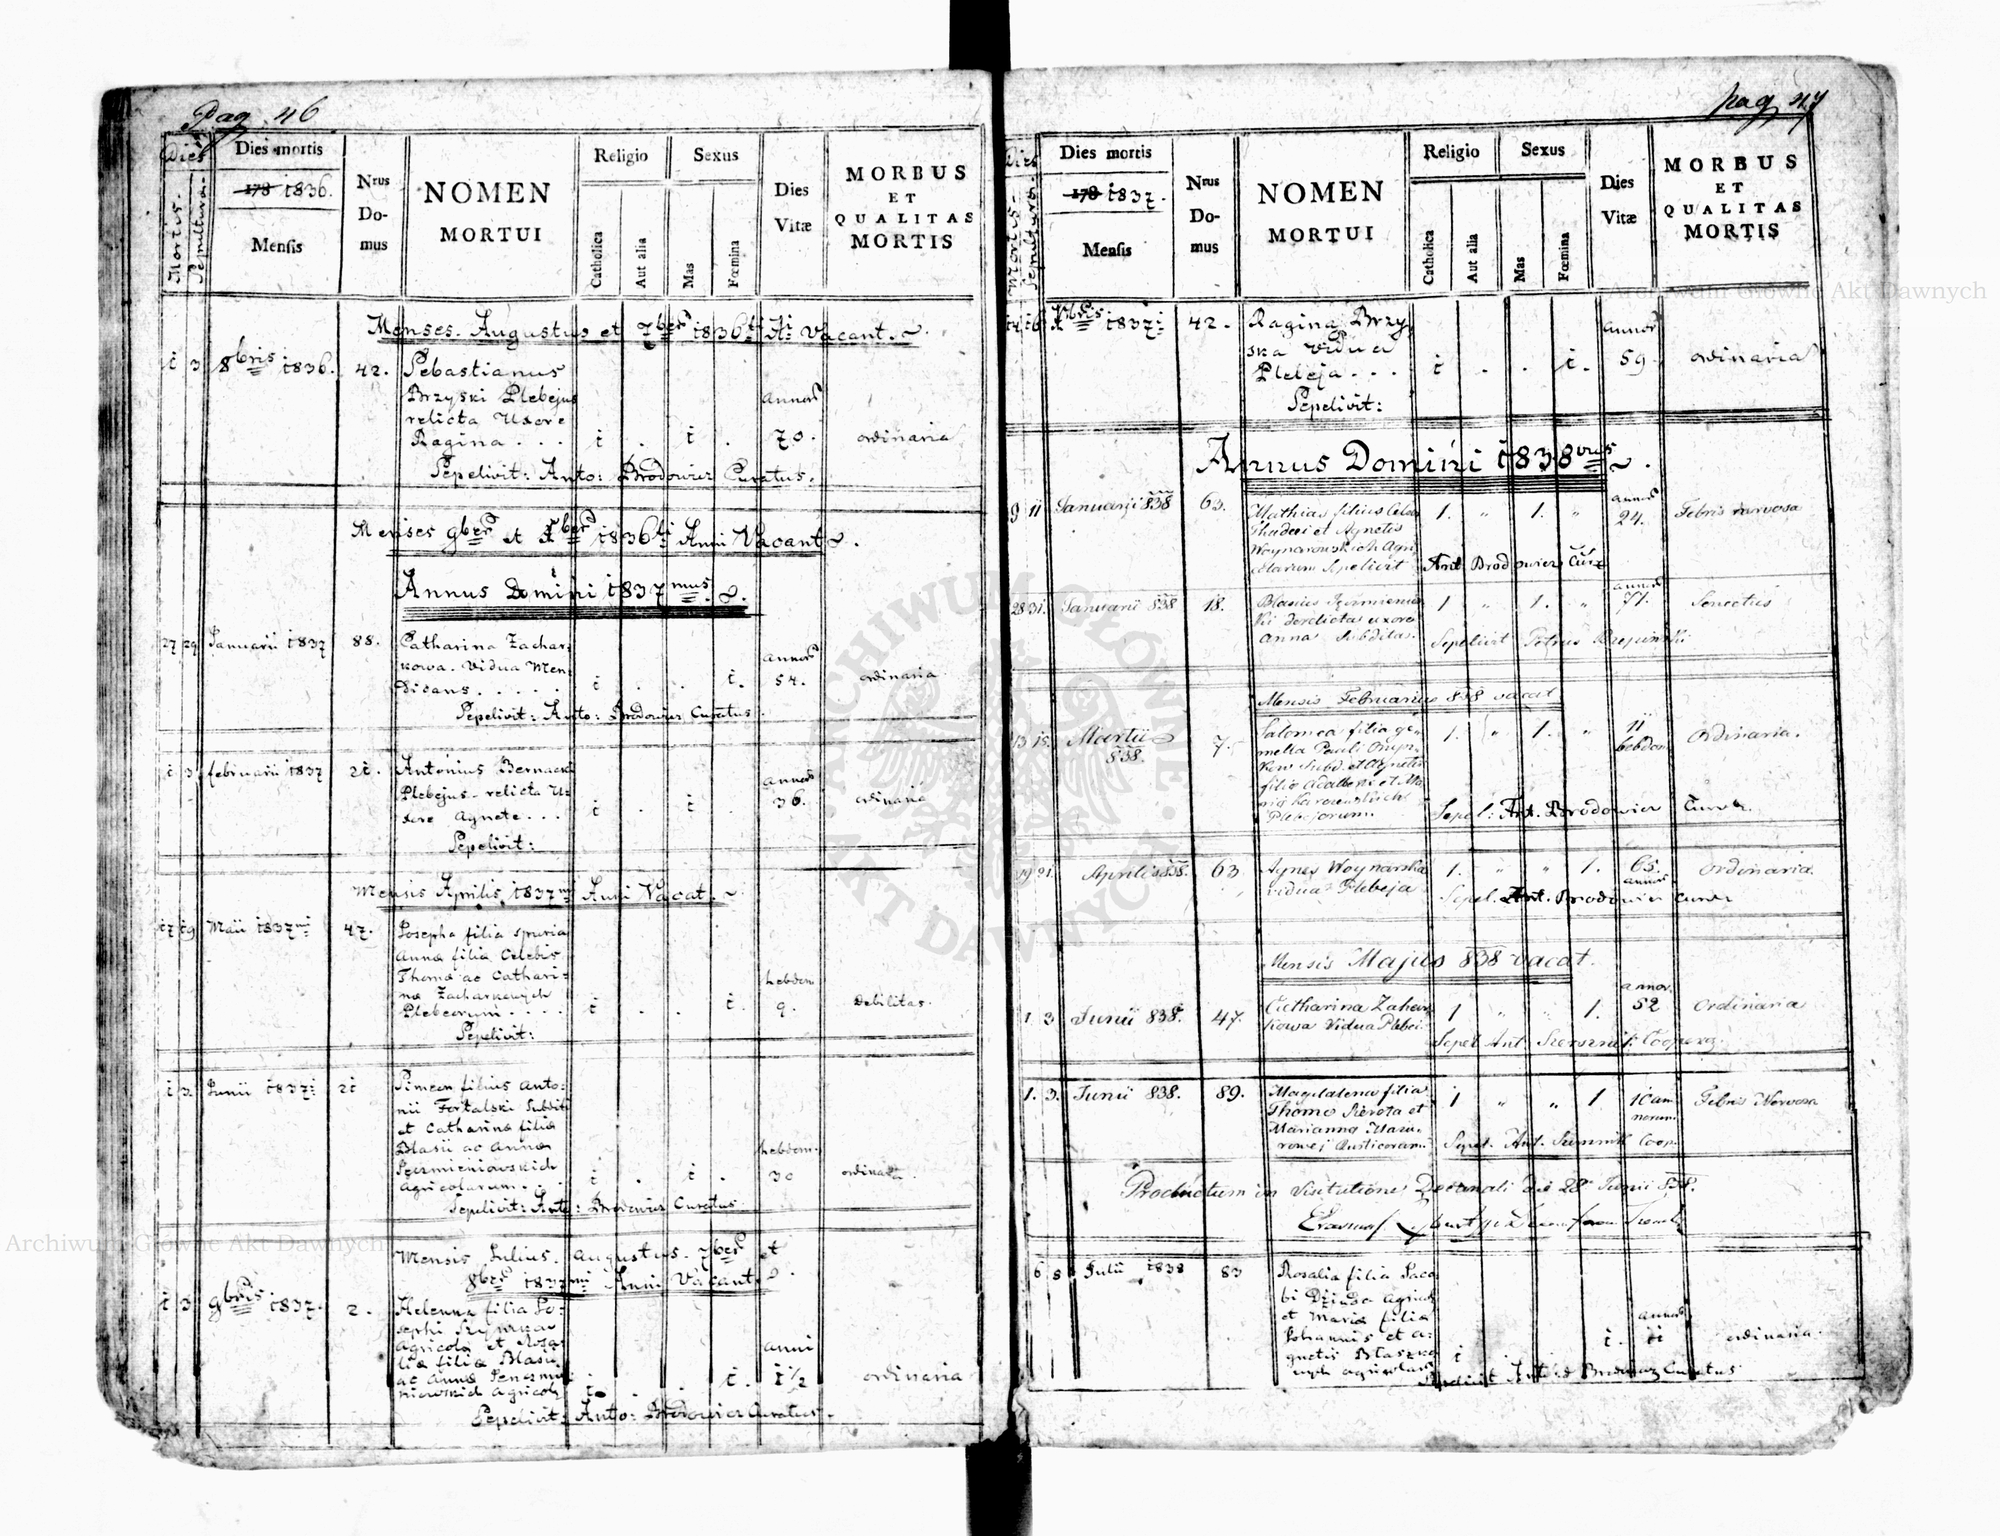 Pag. 46
Dies
Mortis.
Sepulturae.
Dies mortis
178 1836.
Mensis
Nrus
Do-
mus
NOMEN
MORTUI
Religio
Catholica
Aut alia
Sexus
Mas
Fœmina
Dies
Vitæ
MORBUS
ET
QUALITAS
MORTIS
Menses Augustus et 7bris 1836ti Ai Vacant.
1 3 8bris 1836. 42. Sebastianus
Brzyski Plebejus annor
relicta Uxore
Ragina . . . 1 . 1 . 70. ordinaria
Sepelivit: Anto: Brodowicz Curatus.
Menses 9bris et Xbris 1836ti Anni Vacant.
Annus Domini 1837mus.
27 29 Januarii 1837 88. Catharina Zachar-
kowa. Vidua Men- annor
dicans. . . . . 1 . . 1. 54. ordinaria
Sepelivit: Anto: Brodowicz Curatus.
1 3 februarii 1837 21. Antonius Bernacki
Plebejus relicta U- annor
xore Agnete. . . 1 . 1 . 36. ordinaria
Sepelivit:
Mensis Aprilis 1837mi Anni Vacat.
17 19 Maii 1837mi 47. Josepha filia spuria
Anna filia Celebis
Thoma ac Cathari- hebdom
na Zacharkowych
Plebeorum. . . . 1 . . 1. 9. debilitas.
Sepelivit:
1 3 Junii 1837i 21 Simeon filius Anto:
nii Fortalski Subditi
et Catharina filia
Blasii ac Anna hebdom.
Szermieniowskich
Agricolarum. . . 1 . 1 . 30 ordinaria.
Sepelivit: Anto: Brodowicz Curatus.
Mensis Julius. Augustus. 7bris et
8bris 1837mi Anni Vacant.
1 3 9bris 1837. 2. Helenna filia Jo-
sephi
Agricola et Rosa-
lia filia Blasii anni
ac Anna
Agricol 1 . . 1. 1 1/2 ordinaria
Sepelivit: Anto: Brodowicz Curatus.
pag. 47
Dies
Mortis.
Sepulturae.
Dies mortis
178 1837.
Mensis
Nrus
Do-
mus
NOMEN
MORTUI
Religio
Catholica
Aut alia
Sexus
Mas
Fœmina
Dies
Vitæ
MORBUS
ET
QUALITAS
MORTIS
14 16 Xbris 1837i 42. Ragina Brzy- annor
ska Vidua
Plebeja . . . 1 . . 1. 59. ordinaria
Sepelivit:
Annus Domini 1838vus.
9 11 Januarii 838 63. Mathias filius Celebs 1. " 1. " annor 24. Febris nervosa
Thadei et Agnetis
Woynarowskich Agri-
colarum Sepelivit Ant Brodowicz Cur
28 31. Januarii 838 18. Blasius 1 " 1. " annor 71. Senectus
ki derelicta uxore
Anna Subdita. Sepelivit Petrus
Mensis Februarius 838 vacat
13 15. Martii 838. 7. Salomea filia ge- 1. " 1. " 11 hebdom Ordinaria.
mella Pauli
Subd. et Agnetis
filia Adalberti et Ma-
ria
Plebejorum. Sepel: Ant. Brodowicz Cur.
19 21. Aprilis 838. 63 Agnes Woynarska 1. " " 1. 65. annor Ordinaria
vidua Plebeja Sepel. Ant. Brodowicz Curat
Mensis Majus 838 vacat.
1. 3 Junii 838. 47. Catharina Zahar- 1 " " 1. annor. 52 Ordinaria
kowa Vidua Plebei. Sepel Ant. Cooper.
1. 3. Junii 838. 89. Magdalena filia 1 " " 1. 10 an- Febris Nervosa
Thoma Sierota et norum.
Marianna Mazu-
rowej Rusticorum. Sepel. Ant. Coop.
Productum in Visitatione Decanali die 28 Junii 838.
6 8 Julii 1838 83 Rosalia filia Jaco-
bi Dziuda Agricol
et Maria filia annor
Johannis et A-
gnetis Błaszko-
wych agricolarum 1 . . 1. 11 ordinaria.
Sepelivit Anto: Brodowicz Curatus
Archiwum Główne Akt Dawnych
Archiwum Główne Akt Dawnych
ARCHIWUM GŁÓWNE AKT DAWNYCH